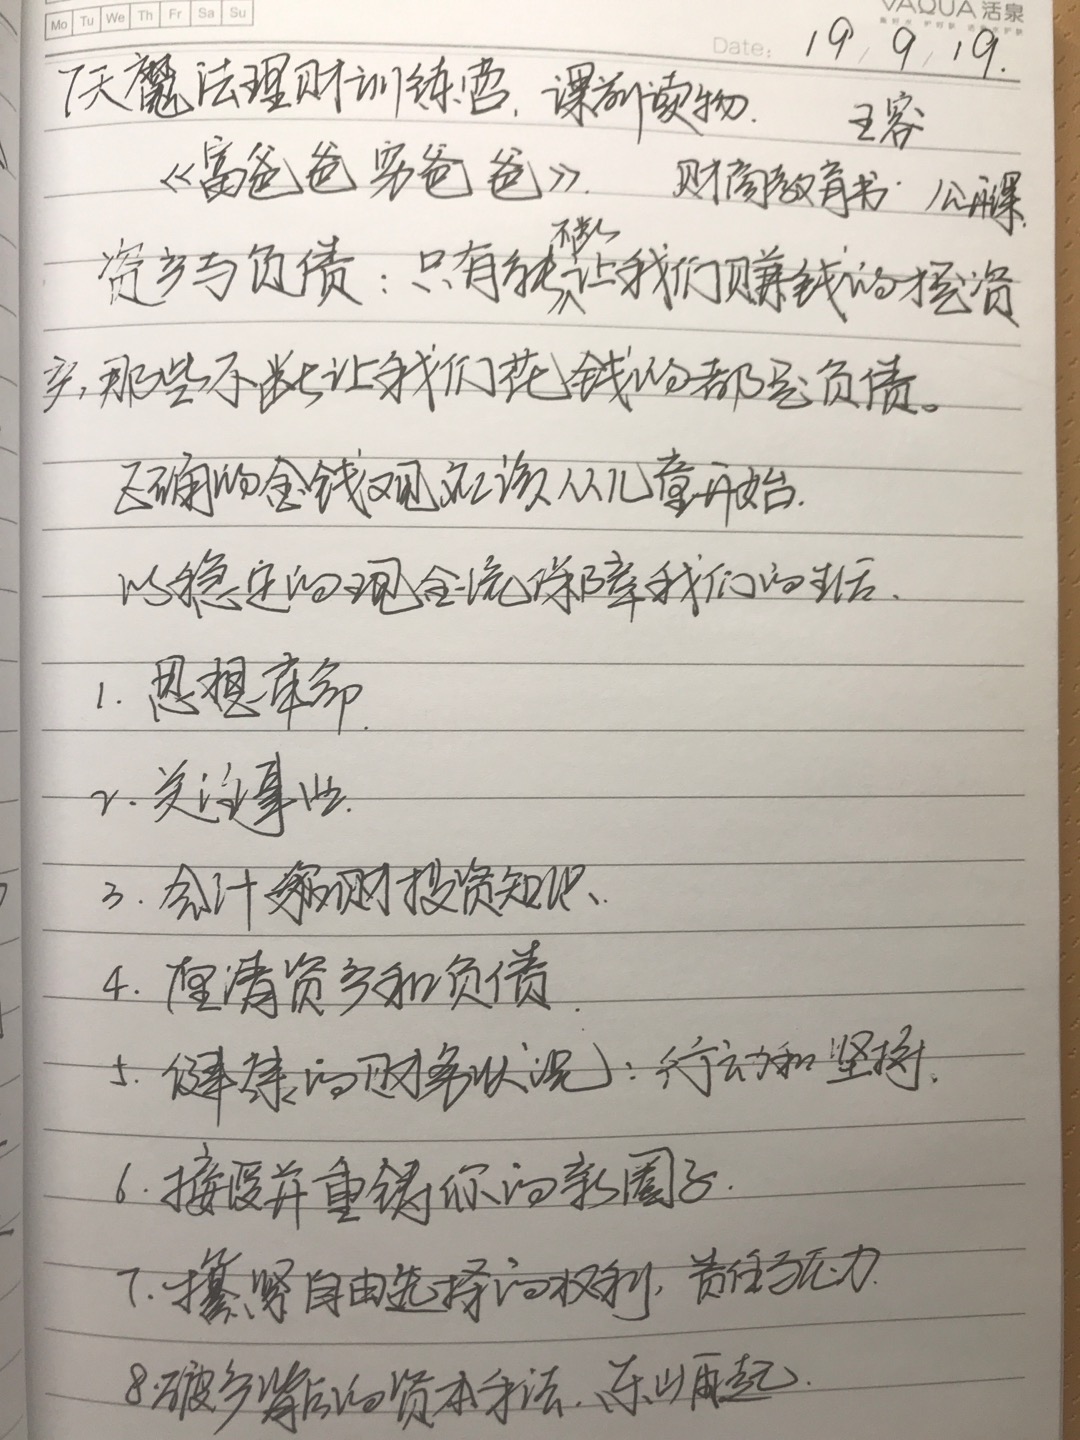 Mo Tu We Th Fr Sa Su
VAQUA 活泉
Date: 19/9/19.
7天魔法理财训练营. 课前读物. 王容
《富爸爸穷爸爸》. 财商教育书. 公开课.
资产与负债：只有能不断让我们赚钱的才是资
产,那些不断让我们花钱的都是负债。
正确的金钱观应该从儿童开始.
以稳定的现金流保障我们的生活.
1. 思想革命.
2. 关注事业.
3. 会计 理财投资知识.
4. 厘清资产和负债.
5. 健康的财务状况：行动和坚持.
6. 接受并重铸你的新圈子.
7. 攥紧自由选择的权利, 责任与压力.
8. 破产背后的资本手法. 东山再起.